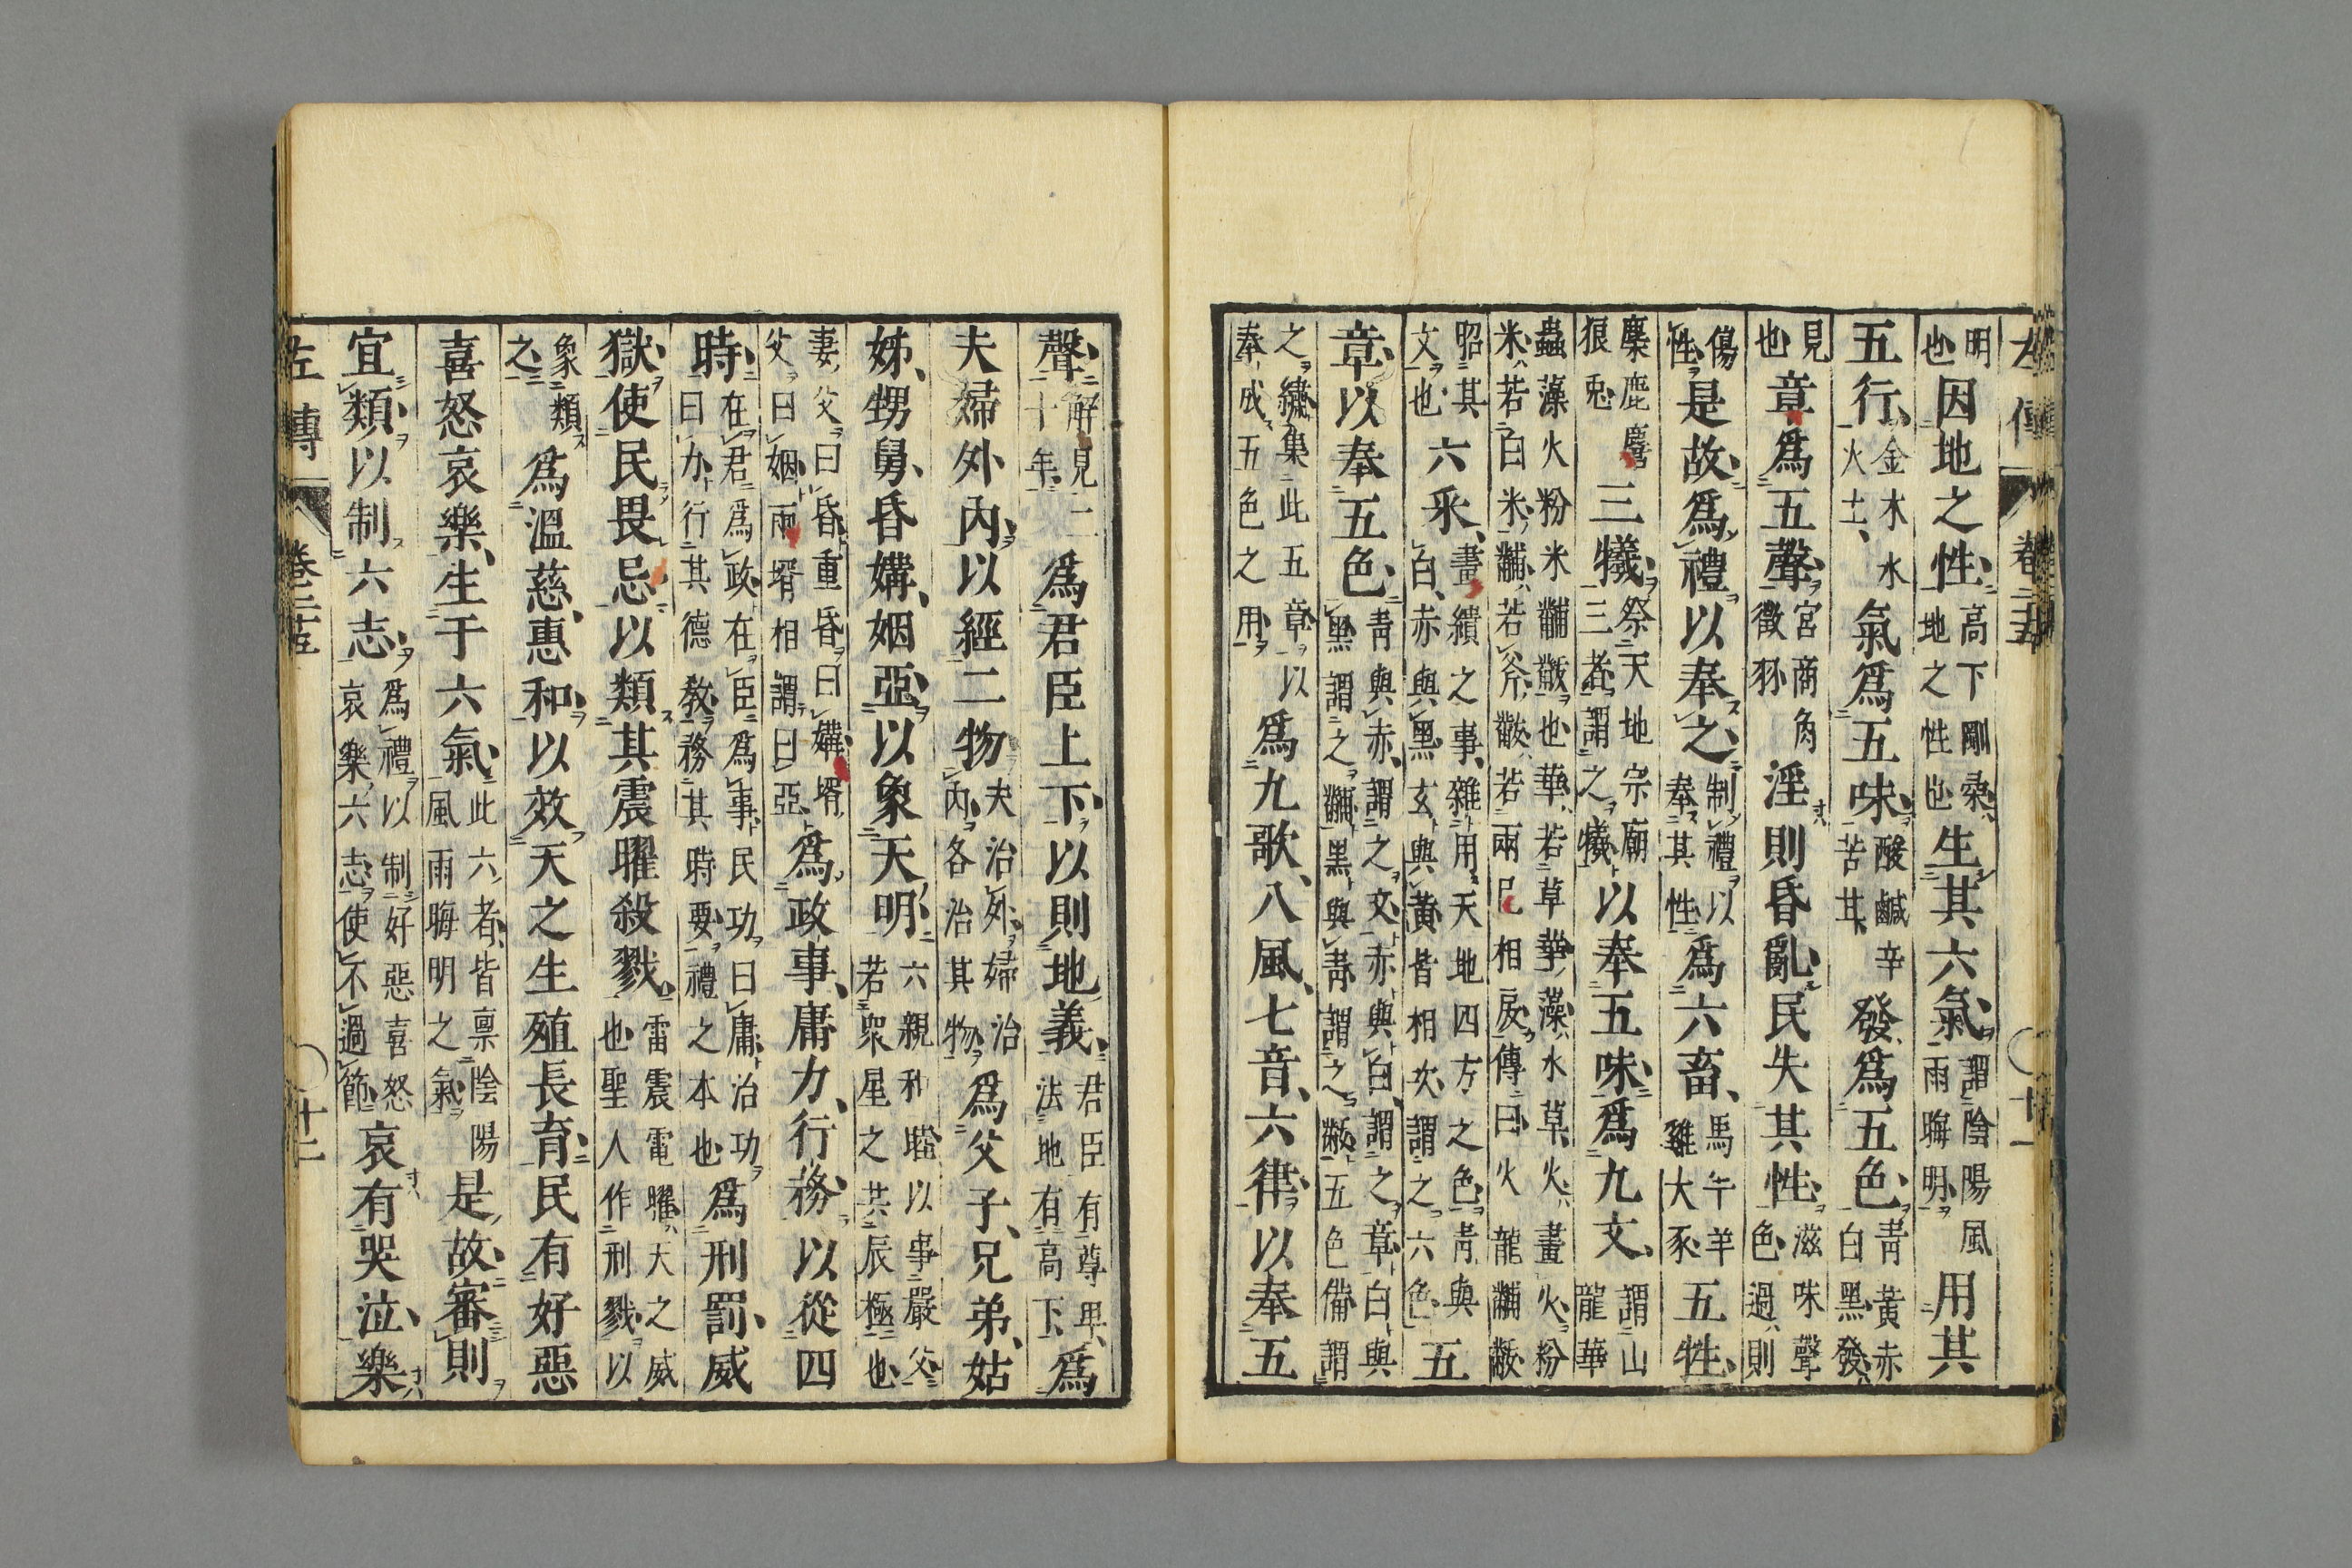 左傳 卷二十五 十一
明也因地之性高下剛柔地之性也生其六氣謂陰陽風雨晦明用其
五行金木水火土氣爲五味酸鹹辛苦甘發爲五色青黃赤白黑發
見也章爲五聲宮商角徵羽淫則昏亂民失其性滋味聲色過則
傷性是故爲禮以奉之制禮以奉其性爲六畜馬牛羊雞犬豕五牲
麋鹿麏狼兔三犧祭天地宗廟三者謂之犧以奉五味爲九文謂山龍華
蟲藻火粉米黼黻也華若草華藻水草火畫火粉米若白米黼若斧黻若兩己相戾傳曰火龍黼黻
昭其文也六采畫繢之事雜用天地四方之色青與白赤與黑玄與黃皆相次謂之六色五
章以奉五色青與赤謂之文赤與白謂之章白與黑謂之黼黑與青謂之黻五色備謂
之繡集此五章以奉成五色之用爲九歌八風七音六律以奉五
聲解見二十年爲君臣上下以則地義君臣有尊卑法地有高下爲
夫婦外內以經二物夫治外婦治內各治其物爲父子兄弟姑
姊甥舅昏媾姻亞以象天明六親和睦以事嚴父若衆星之共辰極也
妻父曰昏重昏曰媾壻父曰姻兩壻相謂曰亞爲政事庸力行務以從四
時在君爲政在臣爲事民功曰庸治功曰力行其德教務其時要禮之本也爲刑罰威
獄使民畏忌以類其震曜殺戮雷震電曜天之威也聖人作刑戮以
象類之爲溫慈惠和以效天之生殖長育民有好惡
喜怒哀樂生于六氣此六者皆稟陰陽風雨晦明之氣是故審則
宜類以制六志爲禮以制好惡喜怒哀樂六志使不過節哀有哭泣樂
左傳 卷二十五 十二